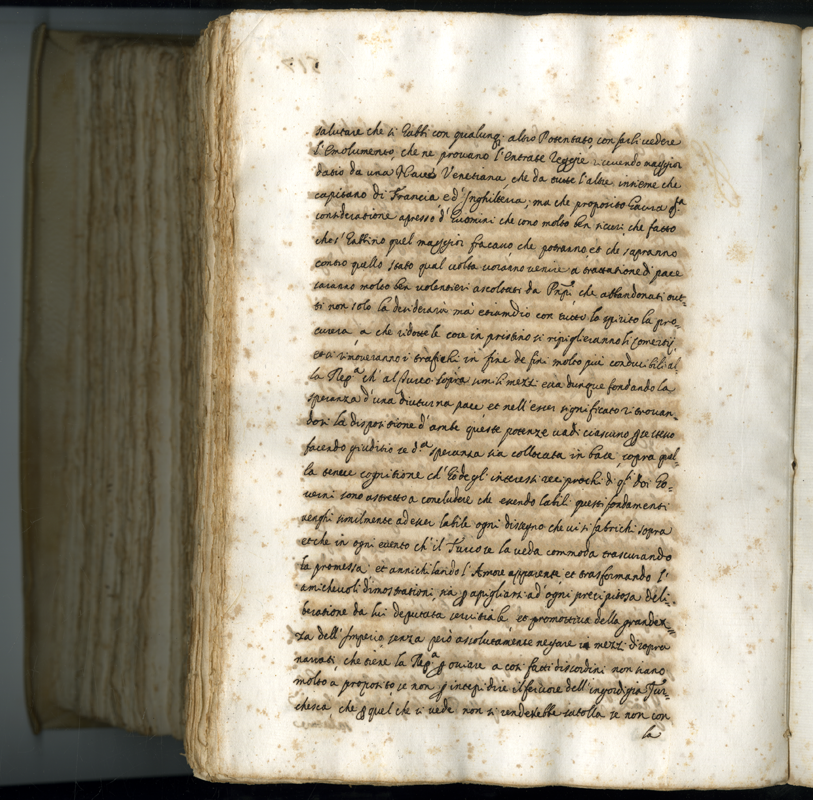 salutare che si habbi con qualunq; altro Potentato, con farli vedere
l'emolumento, che ne provano l'entrate Reggie ricevendo maggior
datio da una Nave Venetiana, che da tutte l'altre insieme che
capitano di Francia ed'Inghilterra; ma che proposito havrà q.ta
consideratione apresso d'huomini che sono molto ben sicuri che fatto
che s'habbino quel maggior fracasso che potranno, et che sapranno
contro quello stato qual volta voranno venire a trattatione di pace
saranno molto ben volentieri ascoltati da Pnpi che abbandonati
ti non solo la desiderarà mà etiamdio con tutto lo spirito la pro-
curerà, a che ridotte le cose in pristino si ripiglieranno li comertij
et si rinoveranno i trafichi in fine de fini molto più conducibili al
la Rep.a ch'al Turco sopra simili mezzi era dunque fondando la
speranza d'una diuturna pace et nell'esser significato ritrovan-
dosi la dispositione d'ambe queste potenze vadi ciascuno se stesso
facendo giuditio se d.a speranza sia collocata in base, sopra quel-
la tenere cognitione ch'hò degl'interessi reciprochi di q.li doi Go-
verni sono astretto a concludere che essendo labili questi fondamenti
venghi similmente ad esser labile ogni disegno che vi si fabrichi sopra
et che in ogni evento ch'il Turco se la veda commoda trascurando
la promessa et annichilando l'Amore apparente, et trasformando l'
amichevoli dimostrationi, sia p apigliarsi ad ogni precipitosa deli-
beratione da lui deputata servitiale, et promottiva della grandez-
za dell'Imperio senza però assolutamente negare i mezzi di sopra
narrati, che tiene la Rep.a p oviare a così fatti discordini non siano
molto a proposito, se non p intepidire il fervore dell'ingordigia Tur-
chesca che p quel che si vede non si renderebbe satolla se non con
la